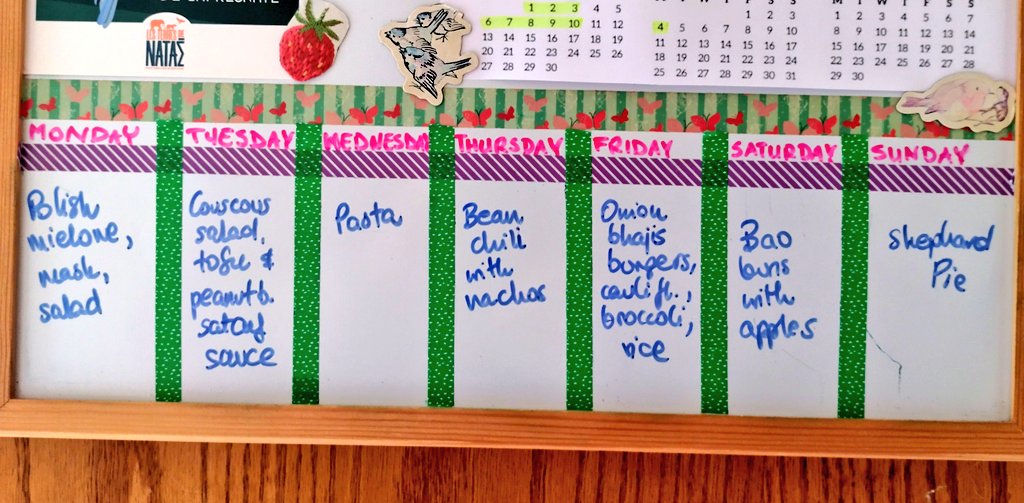 NATAS
1 2 3 4 5
6 7 8 9 10 11 12
13 14 15 16 17 18 19
20 21 22 23 24 25 26
27 28 29 30
1 2 3
4 5 6 7 8 9 10
11 12 13 14 15 16 17
18 19 20 21 22 23 24
25 26 27 28 29 30 31
M T W T F S S
1 2 3 4 5 6 7
8 9 10 11 12 13 14
15 16 17 18 19 20 21
22 23 24 25 26 27 28
29 30
MONDAY
Polish
mielone,
mash,
salad
TUESDAY
Couscous
salad,
tofu &
peanut b.
satay
sauce
WEDNESDAY
Pasta
THURSDAY
Bean
chili
with
nachos
FRIDAY
Onion
bhajis
burgers,
caulifl.,
broccoli,
rice
SATURDAY
Bao
buns
with
apples
SUNDAY
Shephard
Pie